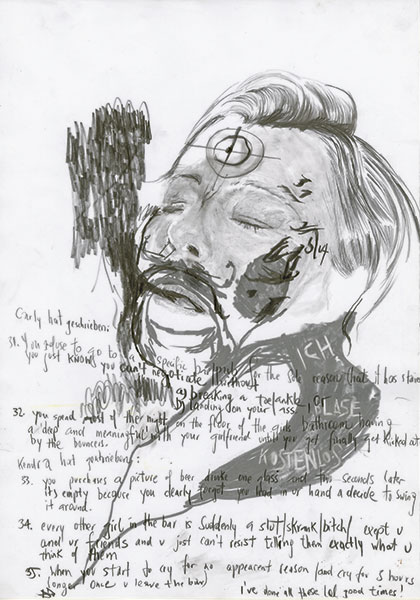 5/14
Carly hat geschrieben:
31. you refuse to go to a specific bar/pub for the sole reason that it has stairs
you just KNOW you can't negotiate without
a) breaking a toe/ankle, or
b) landing on your ass
ICH
LASE
KOSTENLOS
32. you spend most of the night on the floor of the girls bathroom having
a deep and meaningful with your girlfriend until you get finally get kicked out
by the bouncers.
Kendra hat geschrieben:
33. you purchases a picture of beer drinke one glass and two seconds later
its empty because you clearly forgot you had in ur hand a decide to swing
it around.
34. every other girl in the bar is suddenly a slut/skrank/bitch/ exept u
and ur friends and u just can't resist telling them exactly what u
think of them
35. When you start to cry for no appearent reason (and cry for 5 hours
longer once u leave the bar)
i've done all these lol good times!